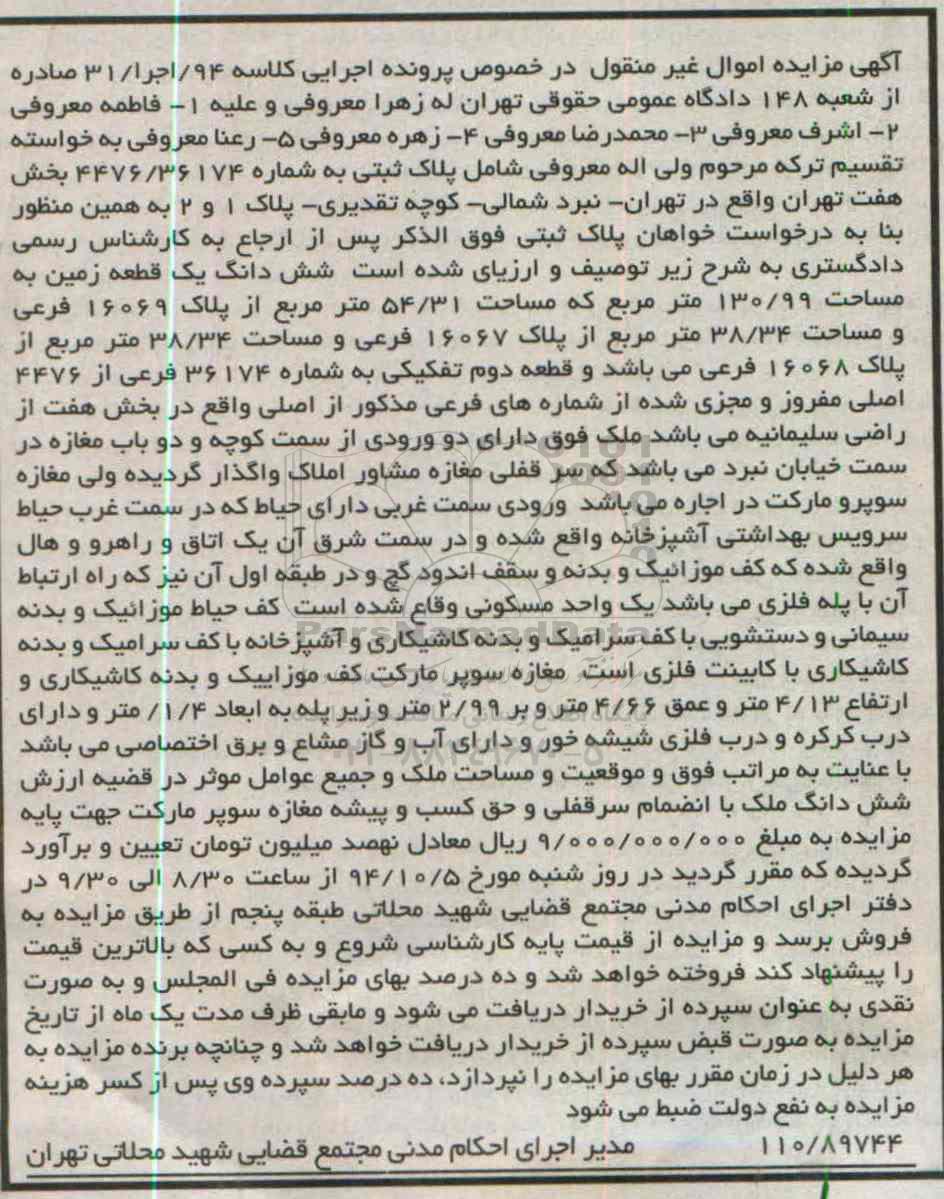 آگهی مزایده اموال غیر منقول در خصوص پرونده اجرایی کلاسه ۹۴/اجرا/۳۱ صادره
از شعبه ۱۴۸ دادگاه عمومی حقوقی تهران له زهرا معروفی و علیه ۱- فاطمه معروفی
۲- اشرف معروفی ۳- محمدرضا معروفی ۴- زهره معروفی ۵- رعنا معروفی به خواسته
تقسیم ترکه مرحوم ولی اله معروفی شامل پلاک ثبتی به شماره ۴۴۷۶/۳۶۱۷۴ بخش
هفت تهران واقع در تهران- نبرد شمالی- کوچه تقدیری- پلاک ۱ و ۲ به همین منظور
بنا به درخواست خواهان پلاک ثبتی فوق الذکر پس از ارجاع به کارشناس رسمی
دادگستری به شرح زیر توصیف و ارزیای شده است شش دانگ یک قطعه زمین به
مساحت ۱۳۰/۹۹ متر مربع که مساحت ۵۴/۳۱ متر مربع از پلاک ۱۶۰۶۹ فرعی
و مساحت ۳۸/۳۴ متر مربع از پلاک ۱۶۰۶۷ فرعی و مساحت ۳۸/۳۴ متر مربع از
پلاک ۱۶۰۶۸ فرعی می باشد و قطعه دوم تفکیکی به شماره ۳۶۱۷۴ فرعی از ۴۴۷۶
اصلی مفروز و مجزی شده از شماره های فرعی مذکور از اصلی واقع در بخش هفت از
راضی سلیمانیه می باشد ملک فوق دارای دو ورودی از سمت کوچه و دو باب مغازه در
سمت خیابان نبرد می باشد که سر قفلی مغازه مشاور املاک واگذار گردیده ولی مغازه
سوپرو مارکت در اجاره می باشد ورودی سمت غربی دارای حیاط که در سمت غرب حیاط
سرویس بهداشتی آشپزخانه واقع شده و در سمت شرق آن یک اتاق و راهرو و هال
واقع شده که کف موزائیک و بدنه و سقف اندود گچ و در طبقه اول آن نیز که راه ارتباط
آن با پله فلزی می باشد یک واحد مسکونی وقاع شده است کف حیاط موزائیک و بدنه
سیمانی و دستشویی با کف سرامیک و بدنه کاشیکاری و آشپزخانه با کف سرامیک و بدنه
کاشیکاری با کابینت فلزی است مغازه سوپر مارکت کف موزاییک و بدنه کاشیکاری و
ارتفاع ۴/۱۳ متر و عمق ۴/۶۶ متر و بر ۲/۹۹ متر و زیر پله به ابعاد ۱/۴/ متر و دارای
درب کرکره و درب فلزی شیشه خور و دارای آب و گاز مشاع و برق اختصاصی می باشد
با عنایت به مراتب فوق و موقعیت و مساحت ملک و جمیع عوامل موثر در قضیه ارزش
شش دانگ ملک با انضمام سرقفلی و حق کسب و پیشه مغازه سوپر مارکت جهت پایه
مزایده به مبلغ ۹/۰۰۰/۰۰۰/۰۰۰ ریال معادل نهصد میلیون تومان تعیین و برآورد
گردیده که مقرر گردید در روز شنبه مورخ ۹۴/۱۰/۵ از ساعت ۸/۳۰ الی ۹/۳۰ در
دفتر اجرای احکام مدنی مجتمع قضایی شهید محلاتی طبقه پنجم از طریق مزایده به
فروش برسد و مزایده از قیمت پایه کارشناسی شروع و به کسی که بالاترین قیمت
را پیشنهاد کند فروخته خواهد شد و ده درصد بهای مزایده فی المجلس و به صورت
نقدی به عنوان سپرده از خریدار دریافت می شود و مابقی ظرف مدت یک ماه از تاریخ
مزایده به صورت قبض سپرده از خریدار دریافت خواهد شد و چنانچه برنده مزایده به
هر دلیل در زمان مقرر بهای مزایده را نپردازد، ده درصد سپرده وی پس از کسر هزینه
مزایده به نفع دولت ضبط می شود
۱۱۰/۸۹۷۴۴ مدیر اجرای احکام مدنی مجتمع قضایی شهید محلاتی تهران
ParsNamadData